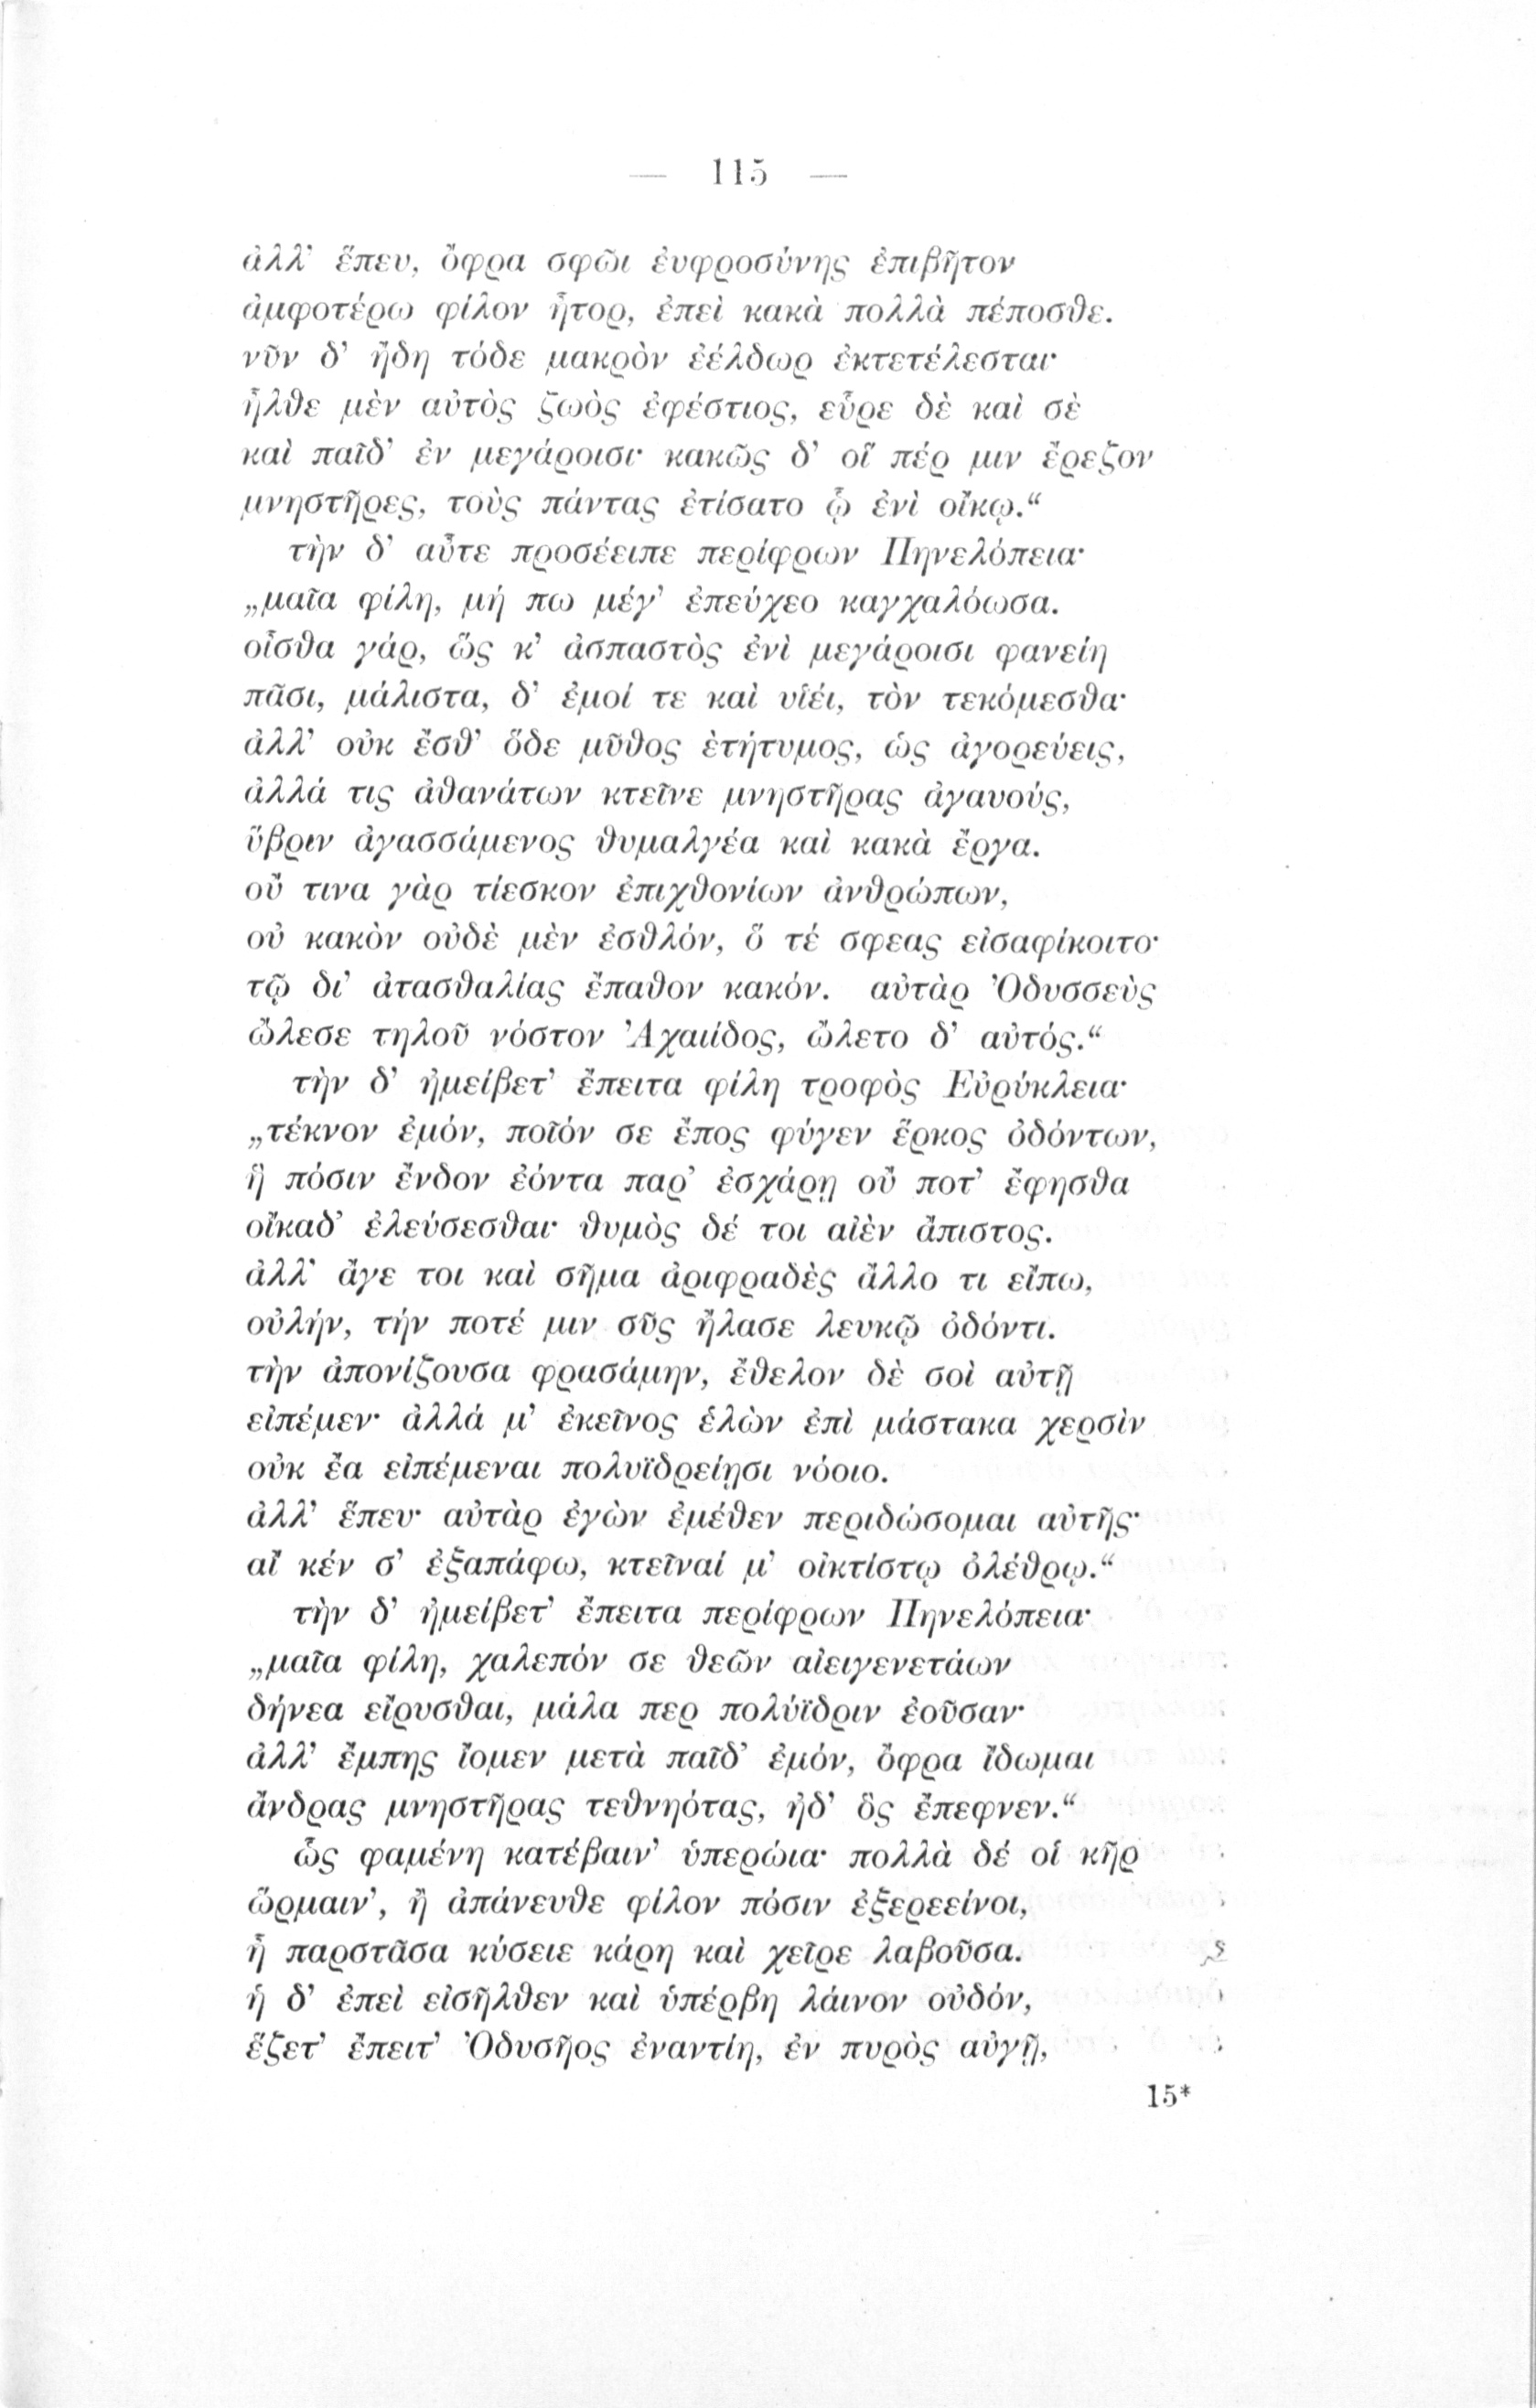 — 115 —
ἀλλ’ ἕπευ, ὄφρα σφῶι ἐυφροσύνης ἐπιβῆτον
ἀμφοτέρω φίλον ἦτορ, ἐπεὶ κακὰ πολλὰ πέποσθε.
νῦν δ’ ἤδη τόδε μακρὸν ἐέλδωρ ἐκτετέλεσται·
ἦλθε μὲν αὐτὸς ζωὸς ἐφέστιος, εὗρε δὲ καὶ σὲ
καὶ παῖδ’ ἐν μεγάροισι· κακῶς δ’ οἵ πέρ μιν ἔρεζον
μνηστῆρες, τοὺς πάντας ἐτίσατο ᾧ ἐνὶ οἴκῳ.“
τὴν δ’ αὖτε προσέειπε περίφρων Πηνελόπεια·
„μαῖα φίλη, μή πω μέγ’ ἐπεύχεο καγχαλόωσα.
οἶσθα γάρ, ὥς κ’ ἀσπαστὸς ἐνὶ μεγάροισι φανείη
πᾶσι, μάλιστα, δ’ ἐμοί τε καὶ υἱέι, τὸν τεκόμεσθα·
ἀλλ’ οὐκ ἔσθ’ ὅδε μῦθος ἐτήτυμος, ὡς ἀγορεύεις,
ἀλλά τις ἀθανάτων κτεῖνε μνηστῆρας ἀγαυούς,
ὕβριν ἀγασσάμενος θυμαλγέα καὶ κακὰ ἔργα.
οὔ τινα γὰρ τίεσκον ἐπιχθονίων ἀνθρώπων,
οὐ κακὸν οὐδὲ μὲν ἐσθλόν, ὅ τέ σφεας εἰσαφίκοιτο·
τῷ δι’ ἀτασθαλίας ἔπαθον κακόν. αὐτὰρ Ὀδυσσεὺς
ὤλεσε τηλοῦ νόστον Ἀχαιίδος, ὤλετο δ’ αὐτός.“
τὴν δ’ ἠμείβετ’ ἔπειτα φίλη τροφὸς Εὐρύκλεια·
„τέκνον ἐμόν, ποῖόν σε ἔπος φύγεν ἕρκος ὀδόντων,
ἣ πόσιν ἔνδον ἐόντα παρ’ ἐσχάρῃ οὔ ποτ’ ἔφησθα
οἴκαδ’ ἐλεύσεσθαι· θυμὸς δέ τοι αἰὲν ἄπιστος.
ἀλλ’ ἄγε τοι καὶ σῆμα ἀριφραδὲς ἄλλο τι εἴπω,
οὐλήν, τήν ποτέ μιν σῦς ἤλασε λευκῷ ὀδόντι.
τὴν ἀπονίζουσα φρασάμην, ἔθελον δὲ σοὶ αὐτῇ
εἰπέμεν· ἀλλά μ’ ἐκεῖνος ἑλὼν ἐπὶ μάστακα χερσὶν
οὐκ ἔα εἰπέμεναι πολυϊδρείῃσι νόοιο.
ἀλλ’ ἕπευ· αὐτὰρ ἐγὼν ἐμέθεν περιδώσομαι αὐτῆς·
αἴ κέν σ’ ἐξαπάφω, κτεῖναί μ’ οἰκτίστῳ ὀλέθρῳ.“
τὴν δ’ ἠμείβετ’ ἔπειτα περίφρων Πηνελόπεια·
„μαῖα φίλη, χαλεπόν σε θεῶν αἰειγενετάων
δήνεα εἴρυσθαι, μάλα περ πολύϊδριν ἐοῦσαν·
ἀλλ’ ἔμπης ἴομεν μετὰ παῖδ’ ἐμόν, ὄφρα ἴδωμαι
ἄνδρας μνηστῆρας τεθνηότας, ἠδ’ ὃς ἔπεφνεν.“
ὣς φαμένη κατέβαιν’ ὑπερώια· πολλὰ δέ οἱ κῆρ
ὥρμαιν’, ἢ ἀπάνευθε φίλον πόσιν ἐξερεείνοι,
ἦ παρστᾶσα κύσειε κάρη καὶ χεῖρε λαβοῦσα.
ἡ δ’ ἐπεὶ εἰσῆλθεν καὶ ὑπέρβη λάινον οὐδόν,
ἕζετ’ ἔπειτ’ Ὀδυσῆος ἐναντίη, ἐν πυρὸς αὐγῇ,
15*